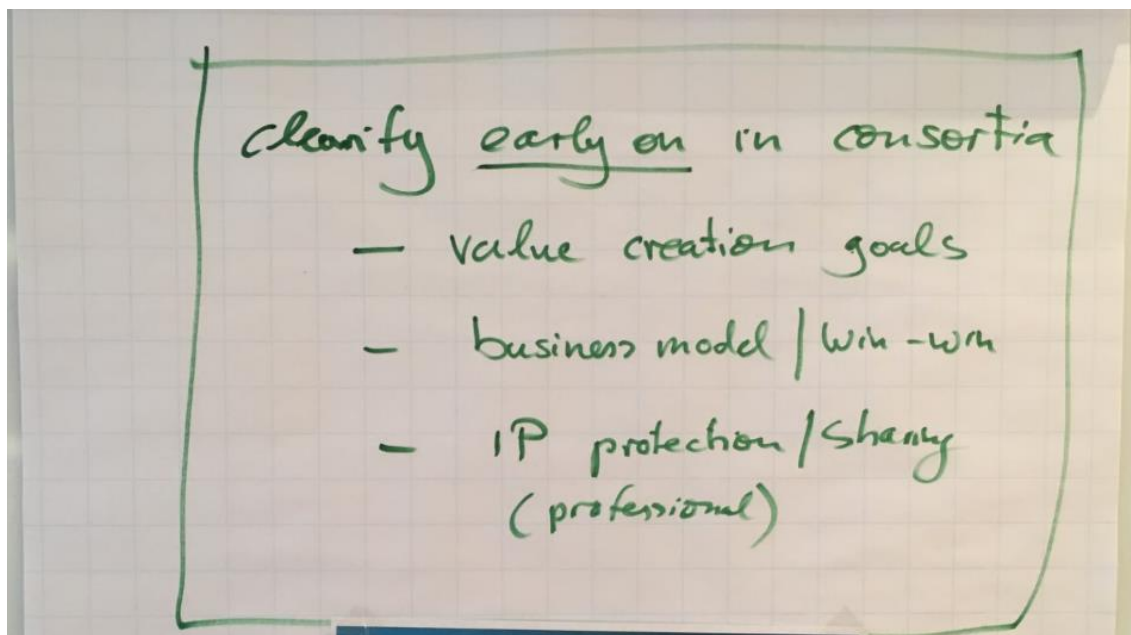 clearify early on in consortia
- value creation goals
- business model / win-win
- IP protection / sharing
(professional)